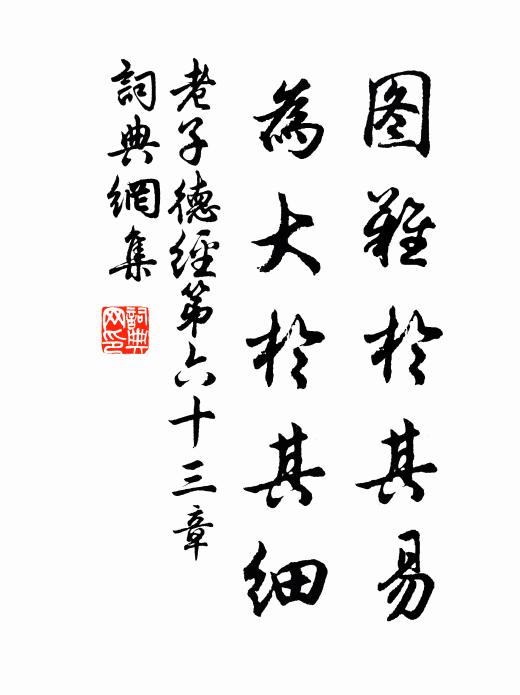 图難於其易
為大於其細
老子德經第六十三章
詞典網集
詞典网印